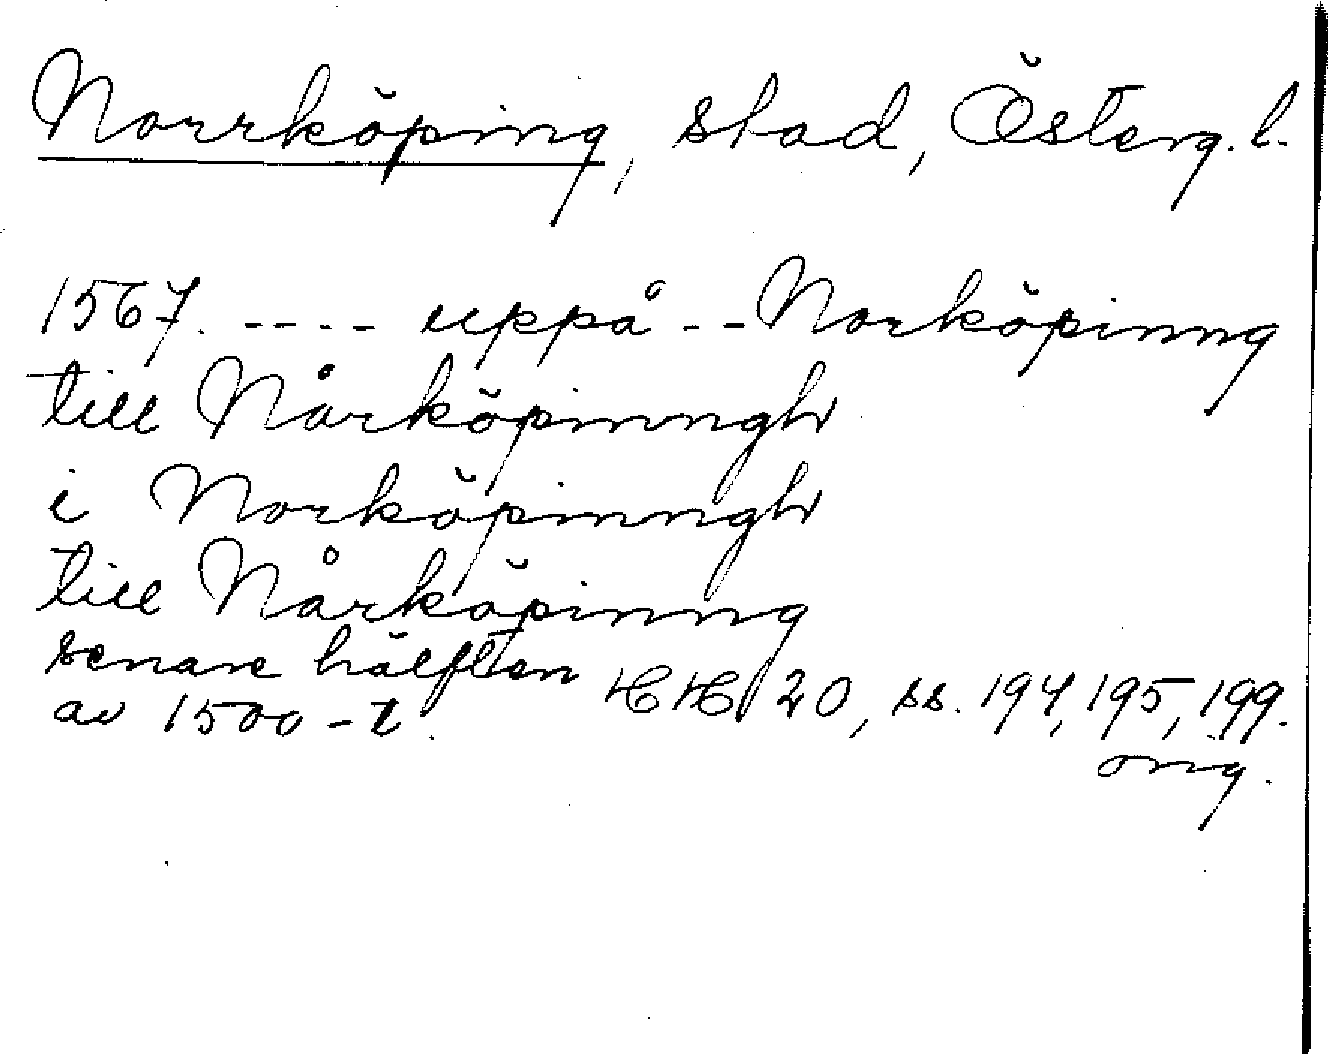 Norrköping, stad, Österg. l.
1567. ---- uppå -- Norköpinng
till Nårköpinngh
i Norköpinngh
till Nårköpinng
senare hälften
av 1500-t. HH 20, ss. 194, 195, 199.
orig.